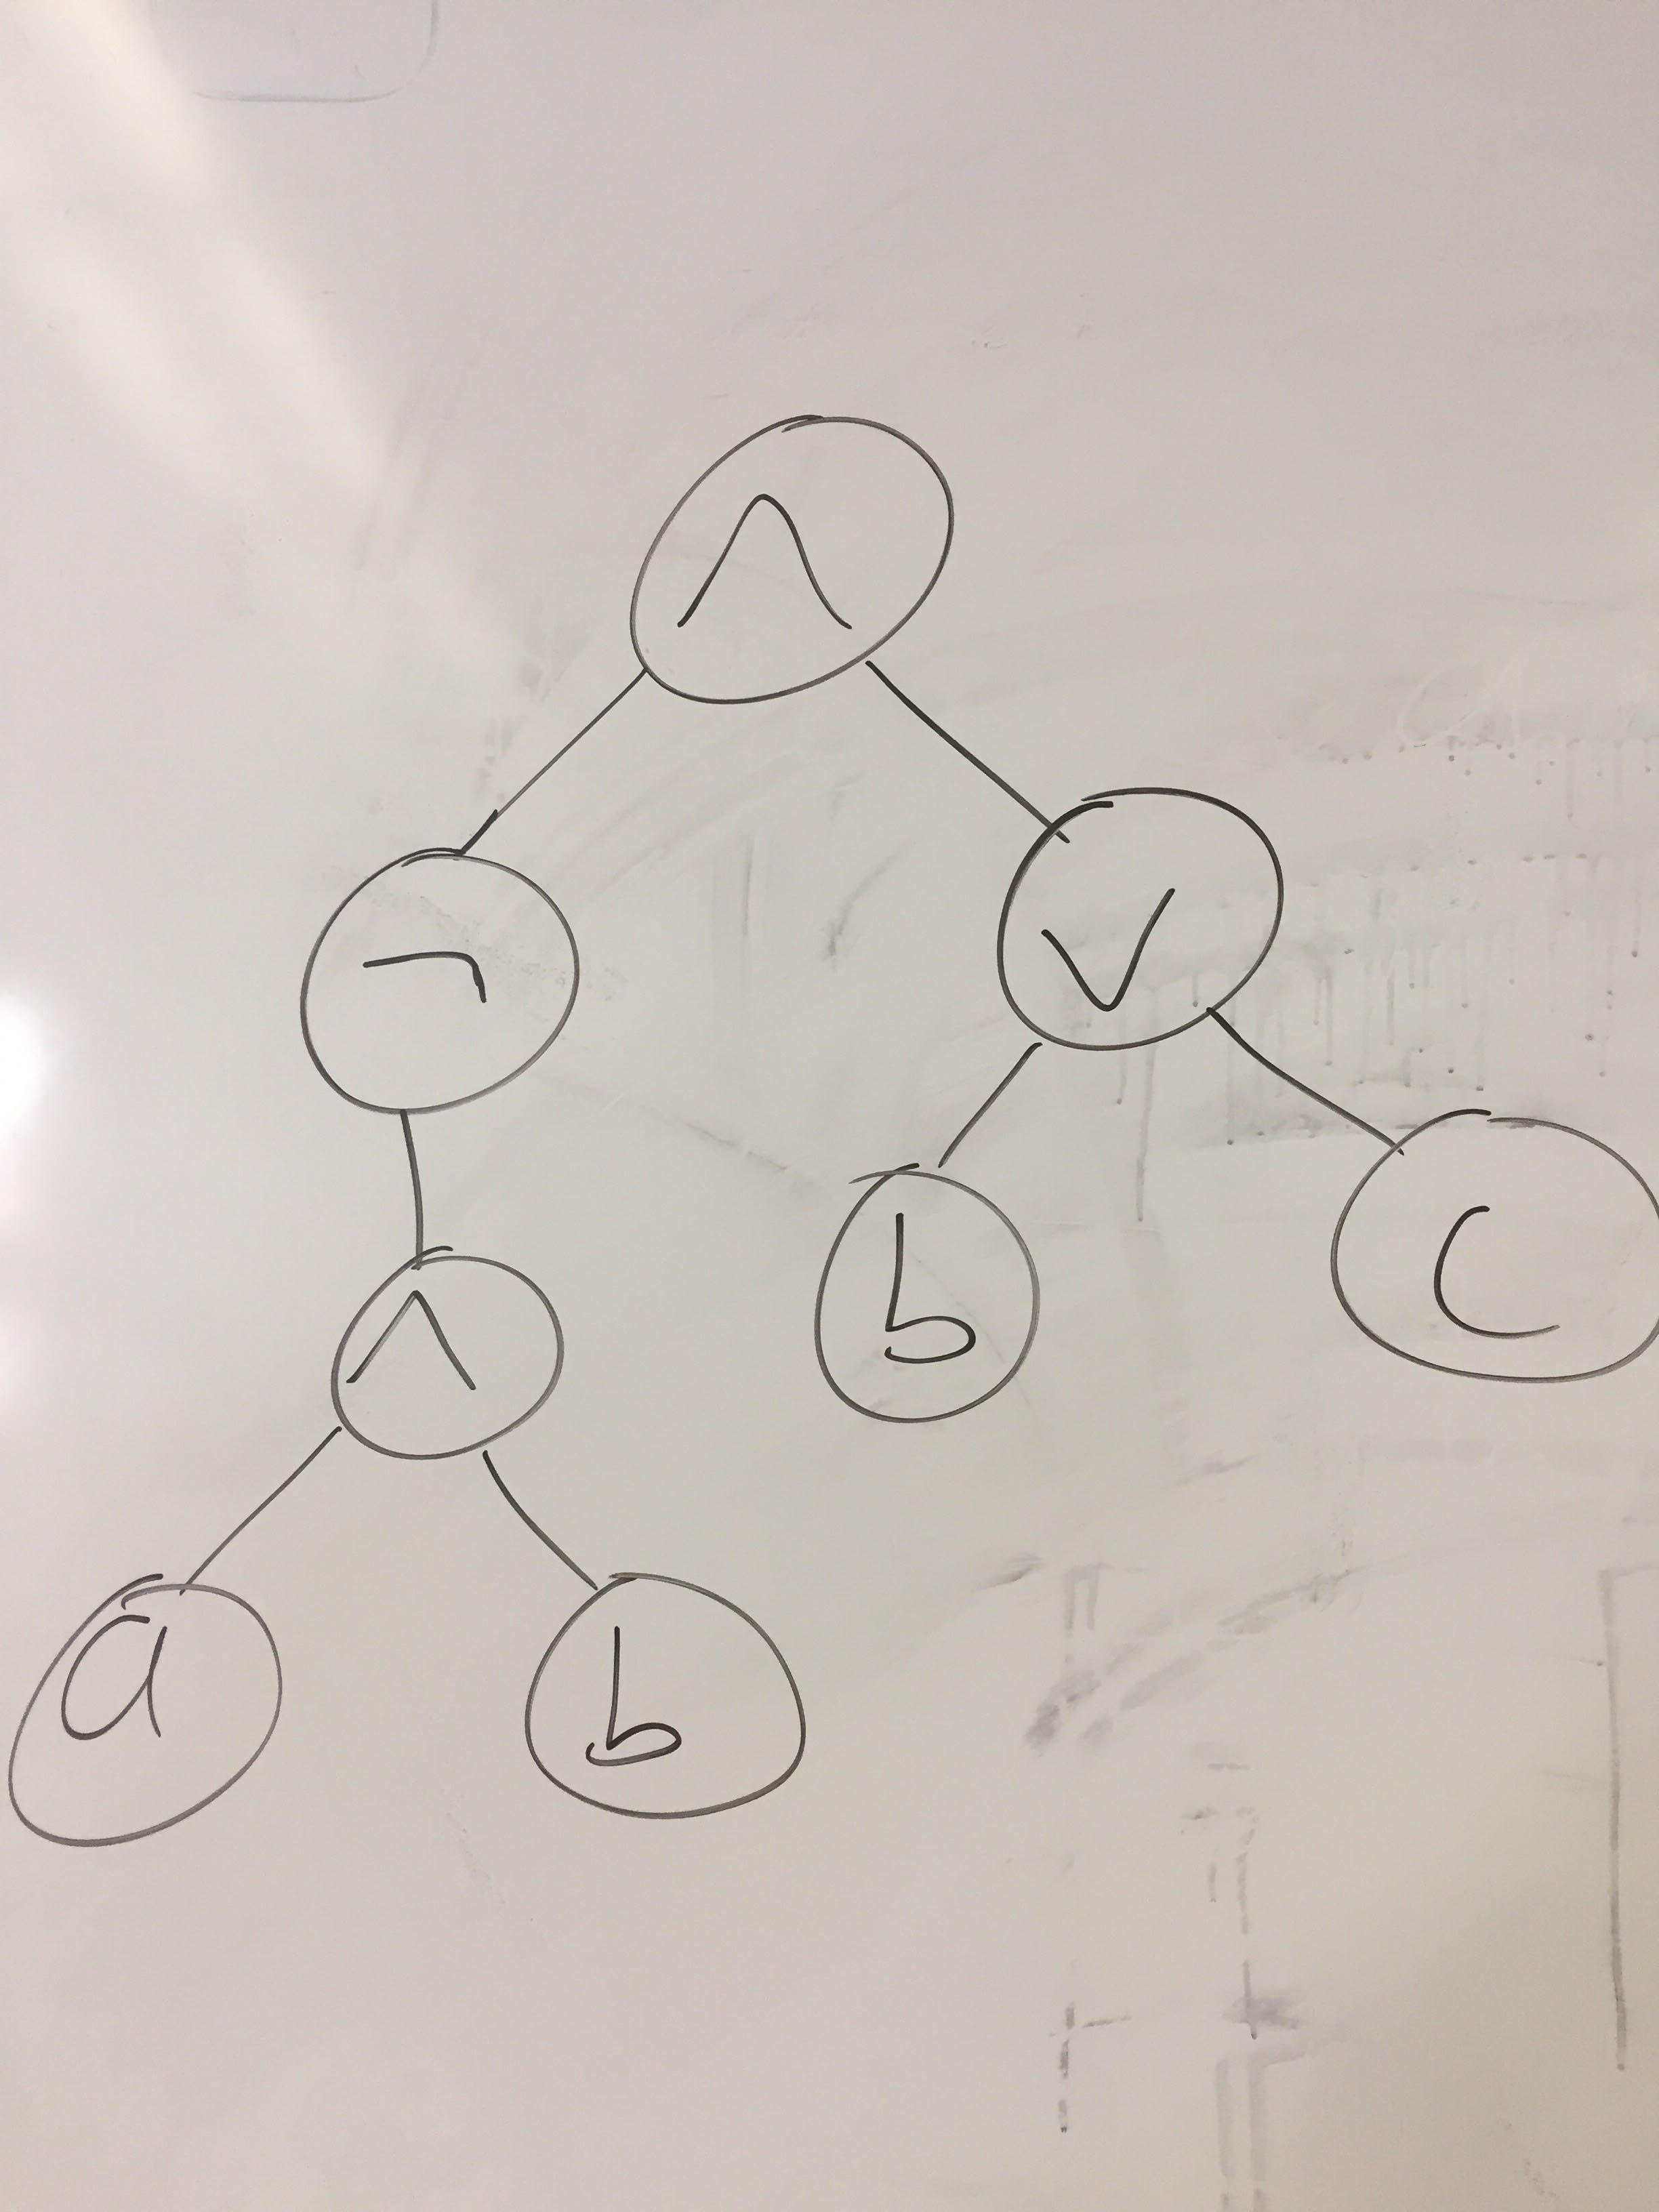 ∧
¬
∨
∧
b
c
a
b